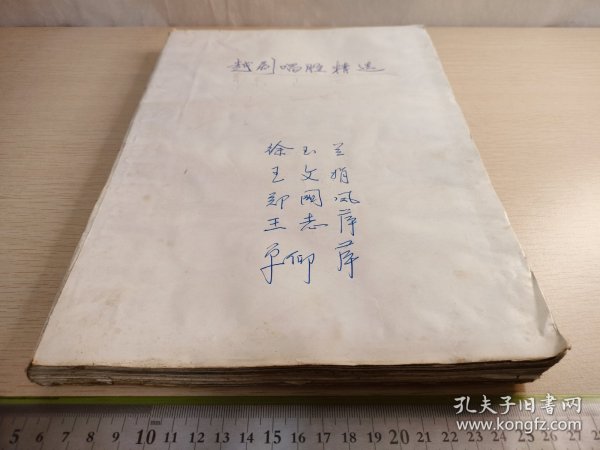 越剧唱腔精选
徐玉兰
王文娟
郑国凤
王志萍
单仰萍
孔夫子旧书网
www.kongfz.com
5 6 7 8 9 10 11 12 13 14 15 16 17 18 19 20 21 22 23 24 25 26 27 28